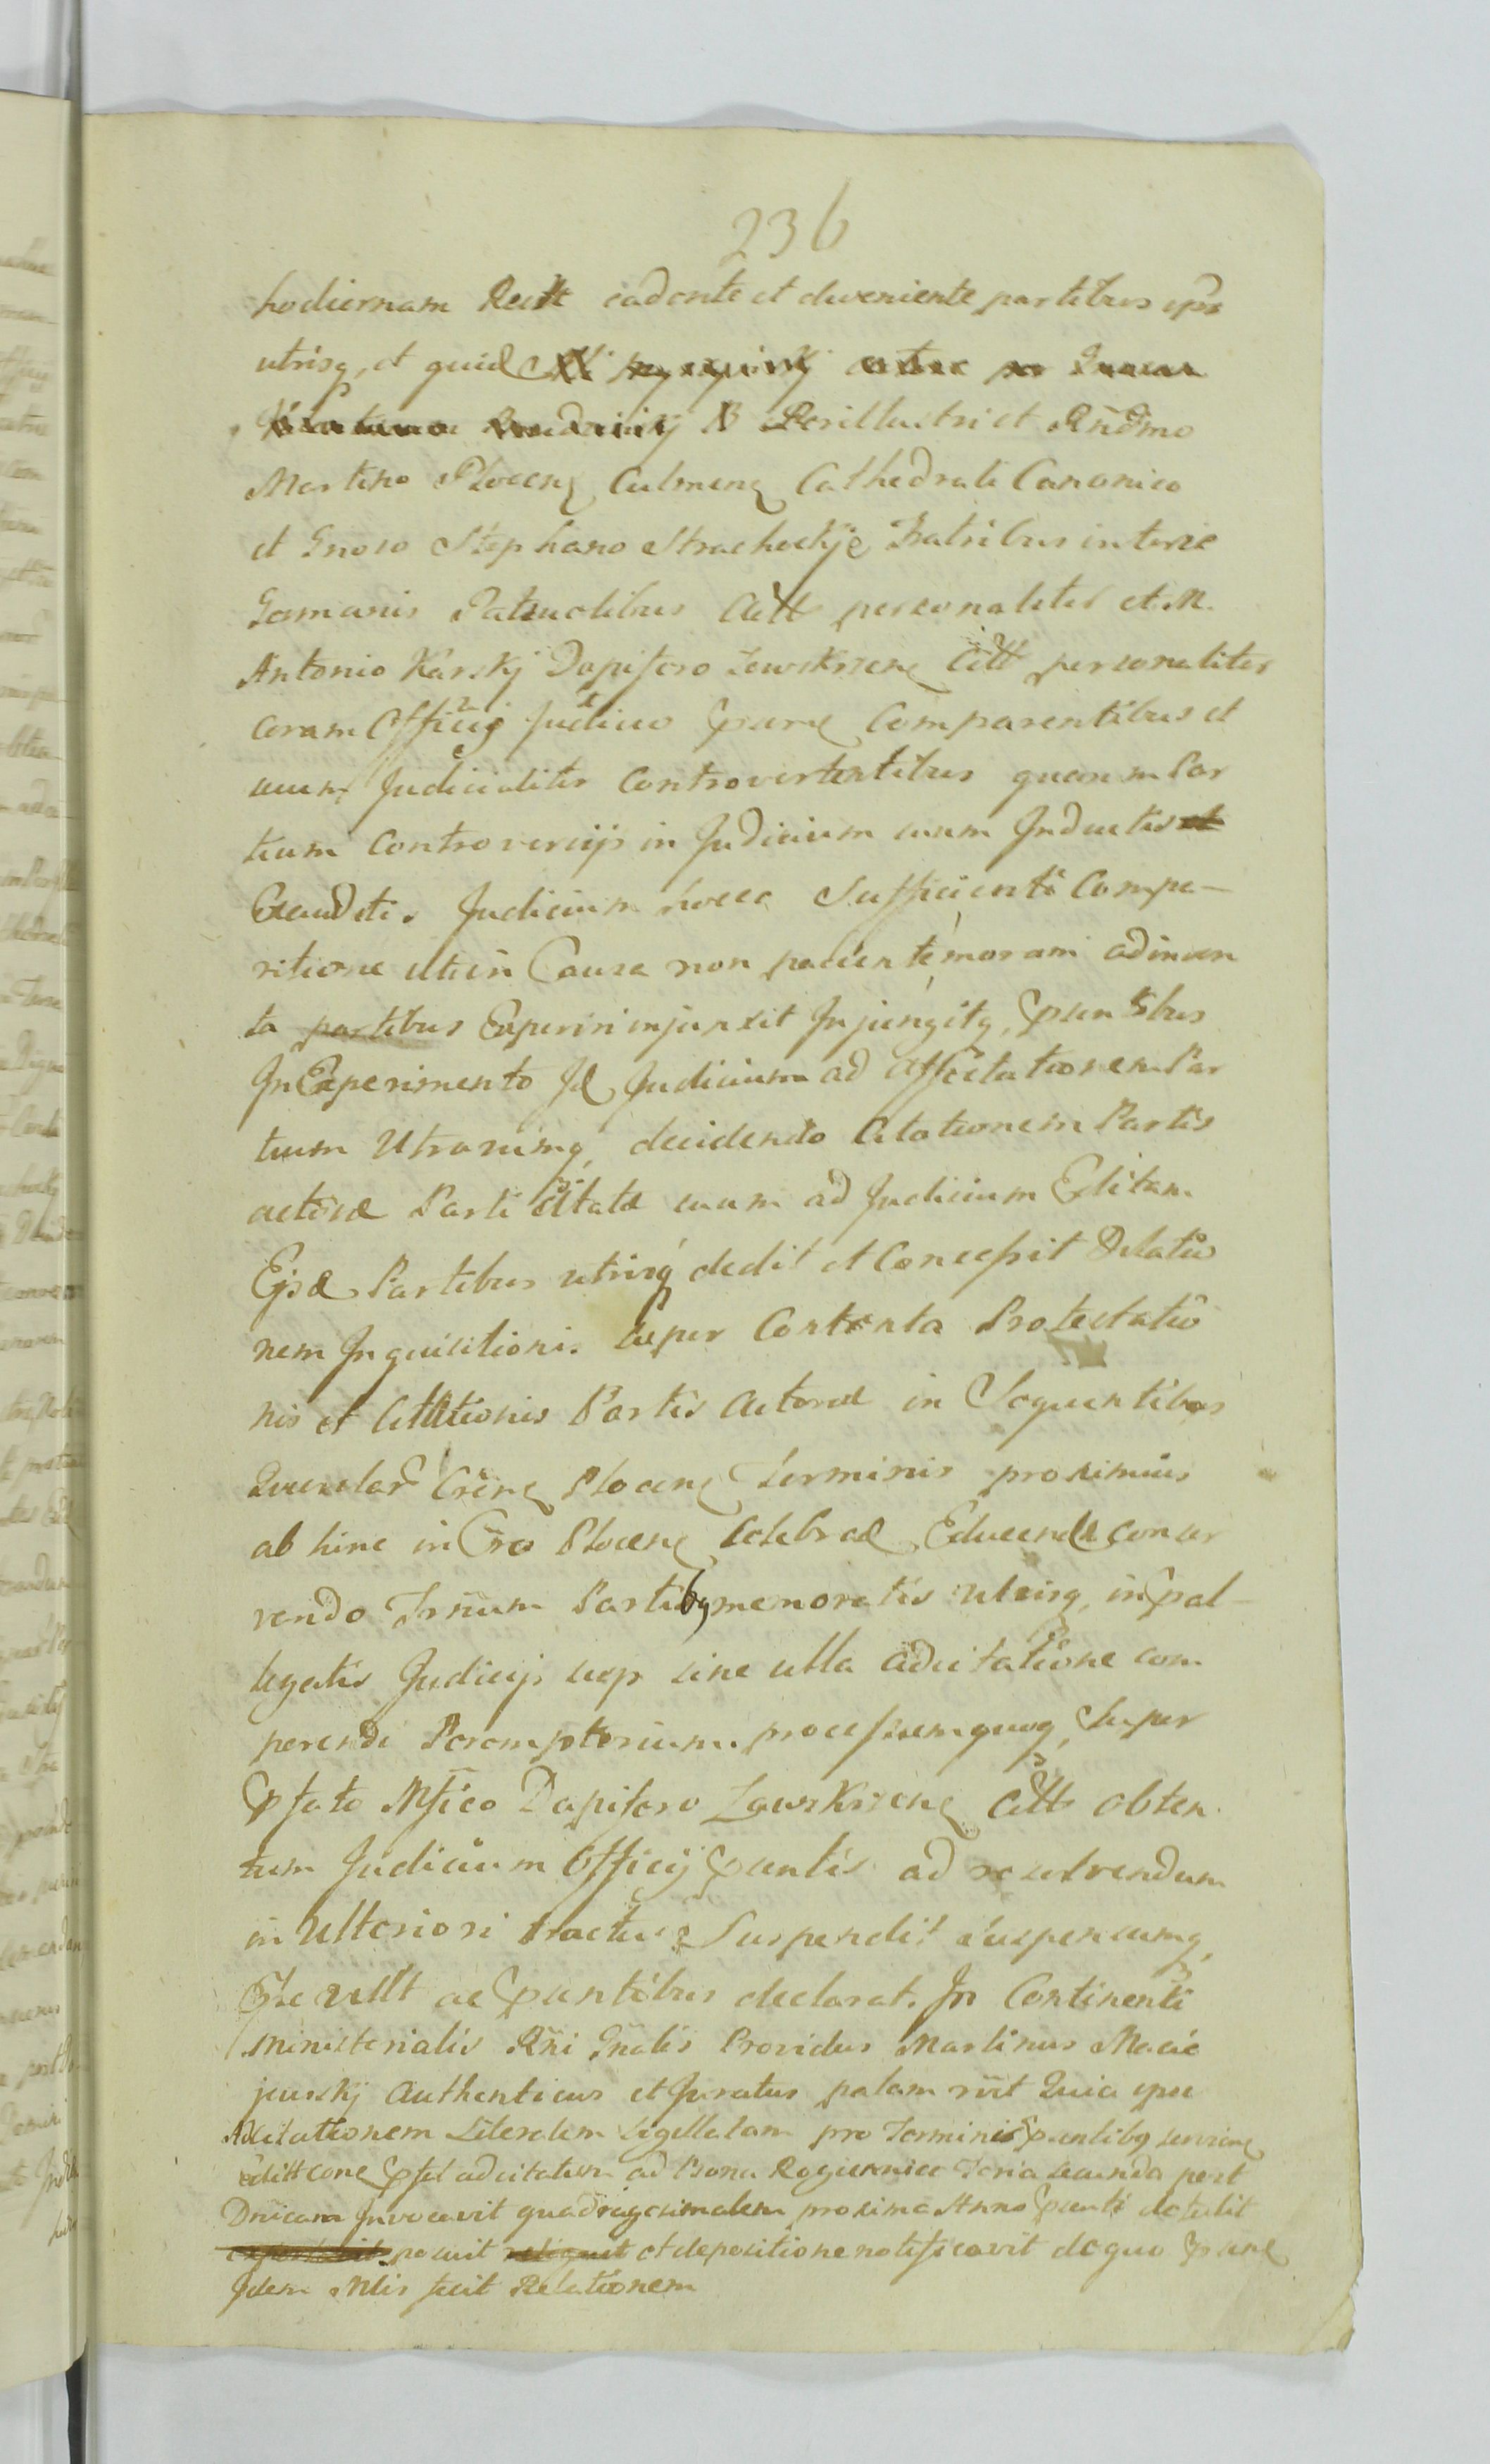 236
hodiernam Rectt cadente et deveniente partibus ips
utrisq, et quid
Perillustri et Rndmo
Martino Plocen Culmen Cathedrali Canonico
et Gnoso Stephano Strachockÿ Fratribus inter se
Germanis Patruelibus Actt personaliter et M.
Antonio Karskÿ Dapifero Zawskrzen Citt personaliter
coram Officÿ Judicio pnne Comparentibus et
suum Judicialiter Controvertentibus quarum Par
tium Controversÿs in Judicium suum Inductis et
Exauditis Judicium hocce Sufficienti Compa-
ritione uti in Causa non pacienté moram adinven
ta partibus Experiri injunxit Injungitq, pnntibus
In Experimento Id Judicium ad affectationem Par
tium Utrarumq, decidendo Citationem Partis
actoreæ Parti Citatæ suum ad Judicium Editam
Ejsd Partibus utrisq dedit et Concessit Dilatio
nem Inquisitionis super Contenta Protestatio
nis et Citationis Partis Actoreæ in Sequentibus
Querelar Crēn Plocen Terminis proximius
ab hinc in Cro Plocen Celebrad Educend Conser
vando Trnum Partibq memoratis utrisq, in pal-
legatis Judicÿs sup sine ulla adcitatione com
perendi Peremptorium. processumquoq, Super
pfato Mfico Dapifero Zawskrzen Citt obten
tum Judicium Officÿ pnntis ad resolvendum
in Ulteriori tractu Suspendit suspensumq,
Esse vult ac pnntibus declarat. In Continenti
Ministerialis Rni Gnalis Providus Martinus Macie
jewskÿ Authenticus et Juratus palam rūt Quia ipse
Adcitationem Literalem sigillatam pro Terminis pnntibq servien
editt con pfat adcitatum ad Bona Rogienice Feria secunda post
Dnicam Invocavit quadragesimalem proxima Anno pnnti detulit
posuit reliquit et depositione notificavit de quo pnne
Idem Mlis fecit Relationem